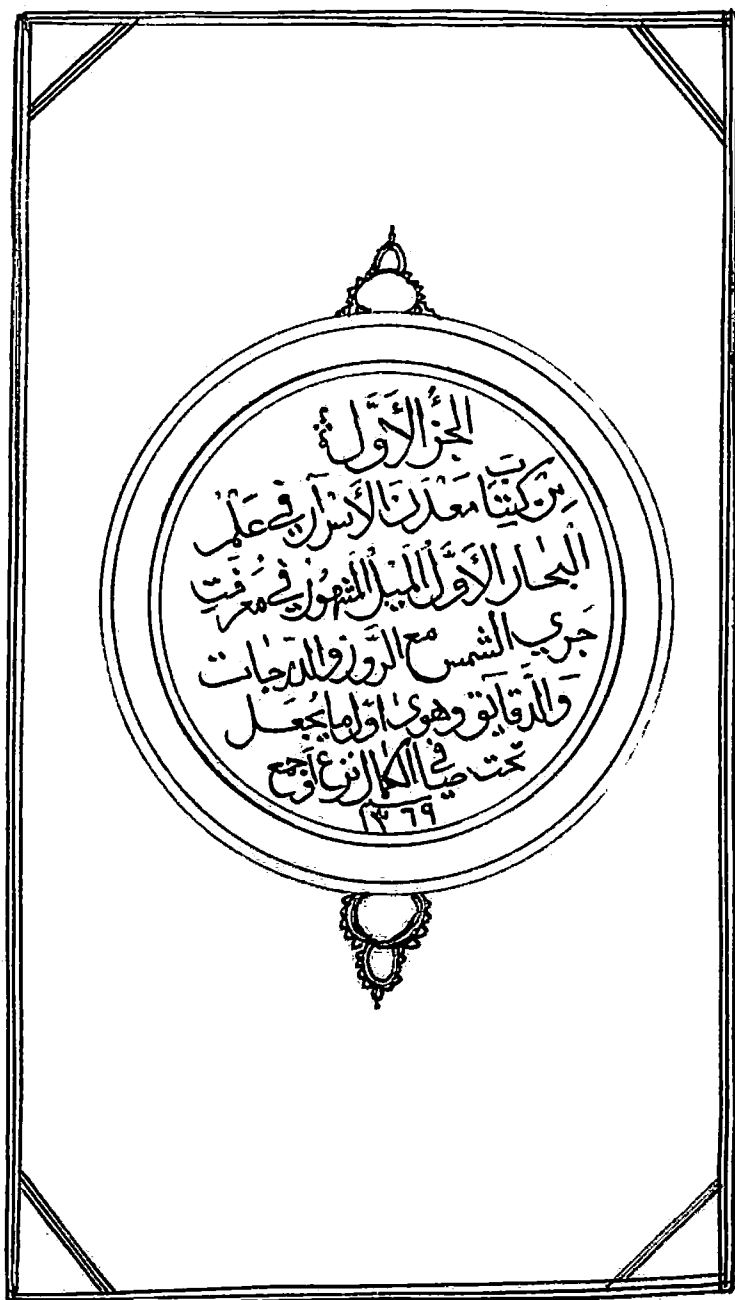 الجزُ الأَوَّل
مِن كِتَابَ مَعْدَنَ الأَسْرَآر في عَلْمْ
البحَار الأَوَّلُ المَيلُ المَشهُورُ في مَعْرفَتِ
جَرْي الشمس مع الرَّوز والدرجات
وَالدَّقايَق وهوىٰ اوّل ما يجعَل
تحت في الكمال
١٣٦٩